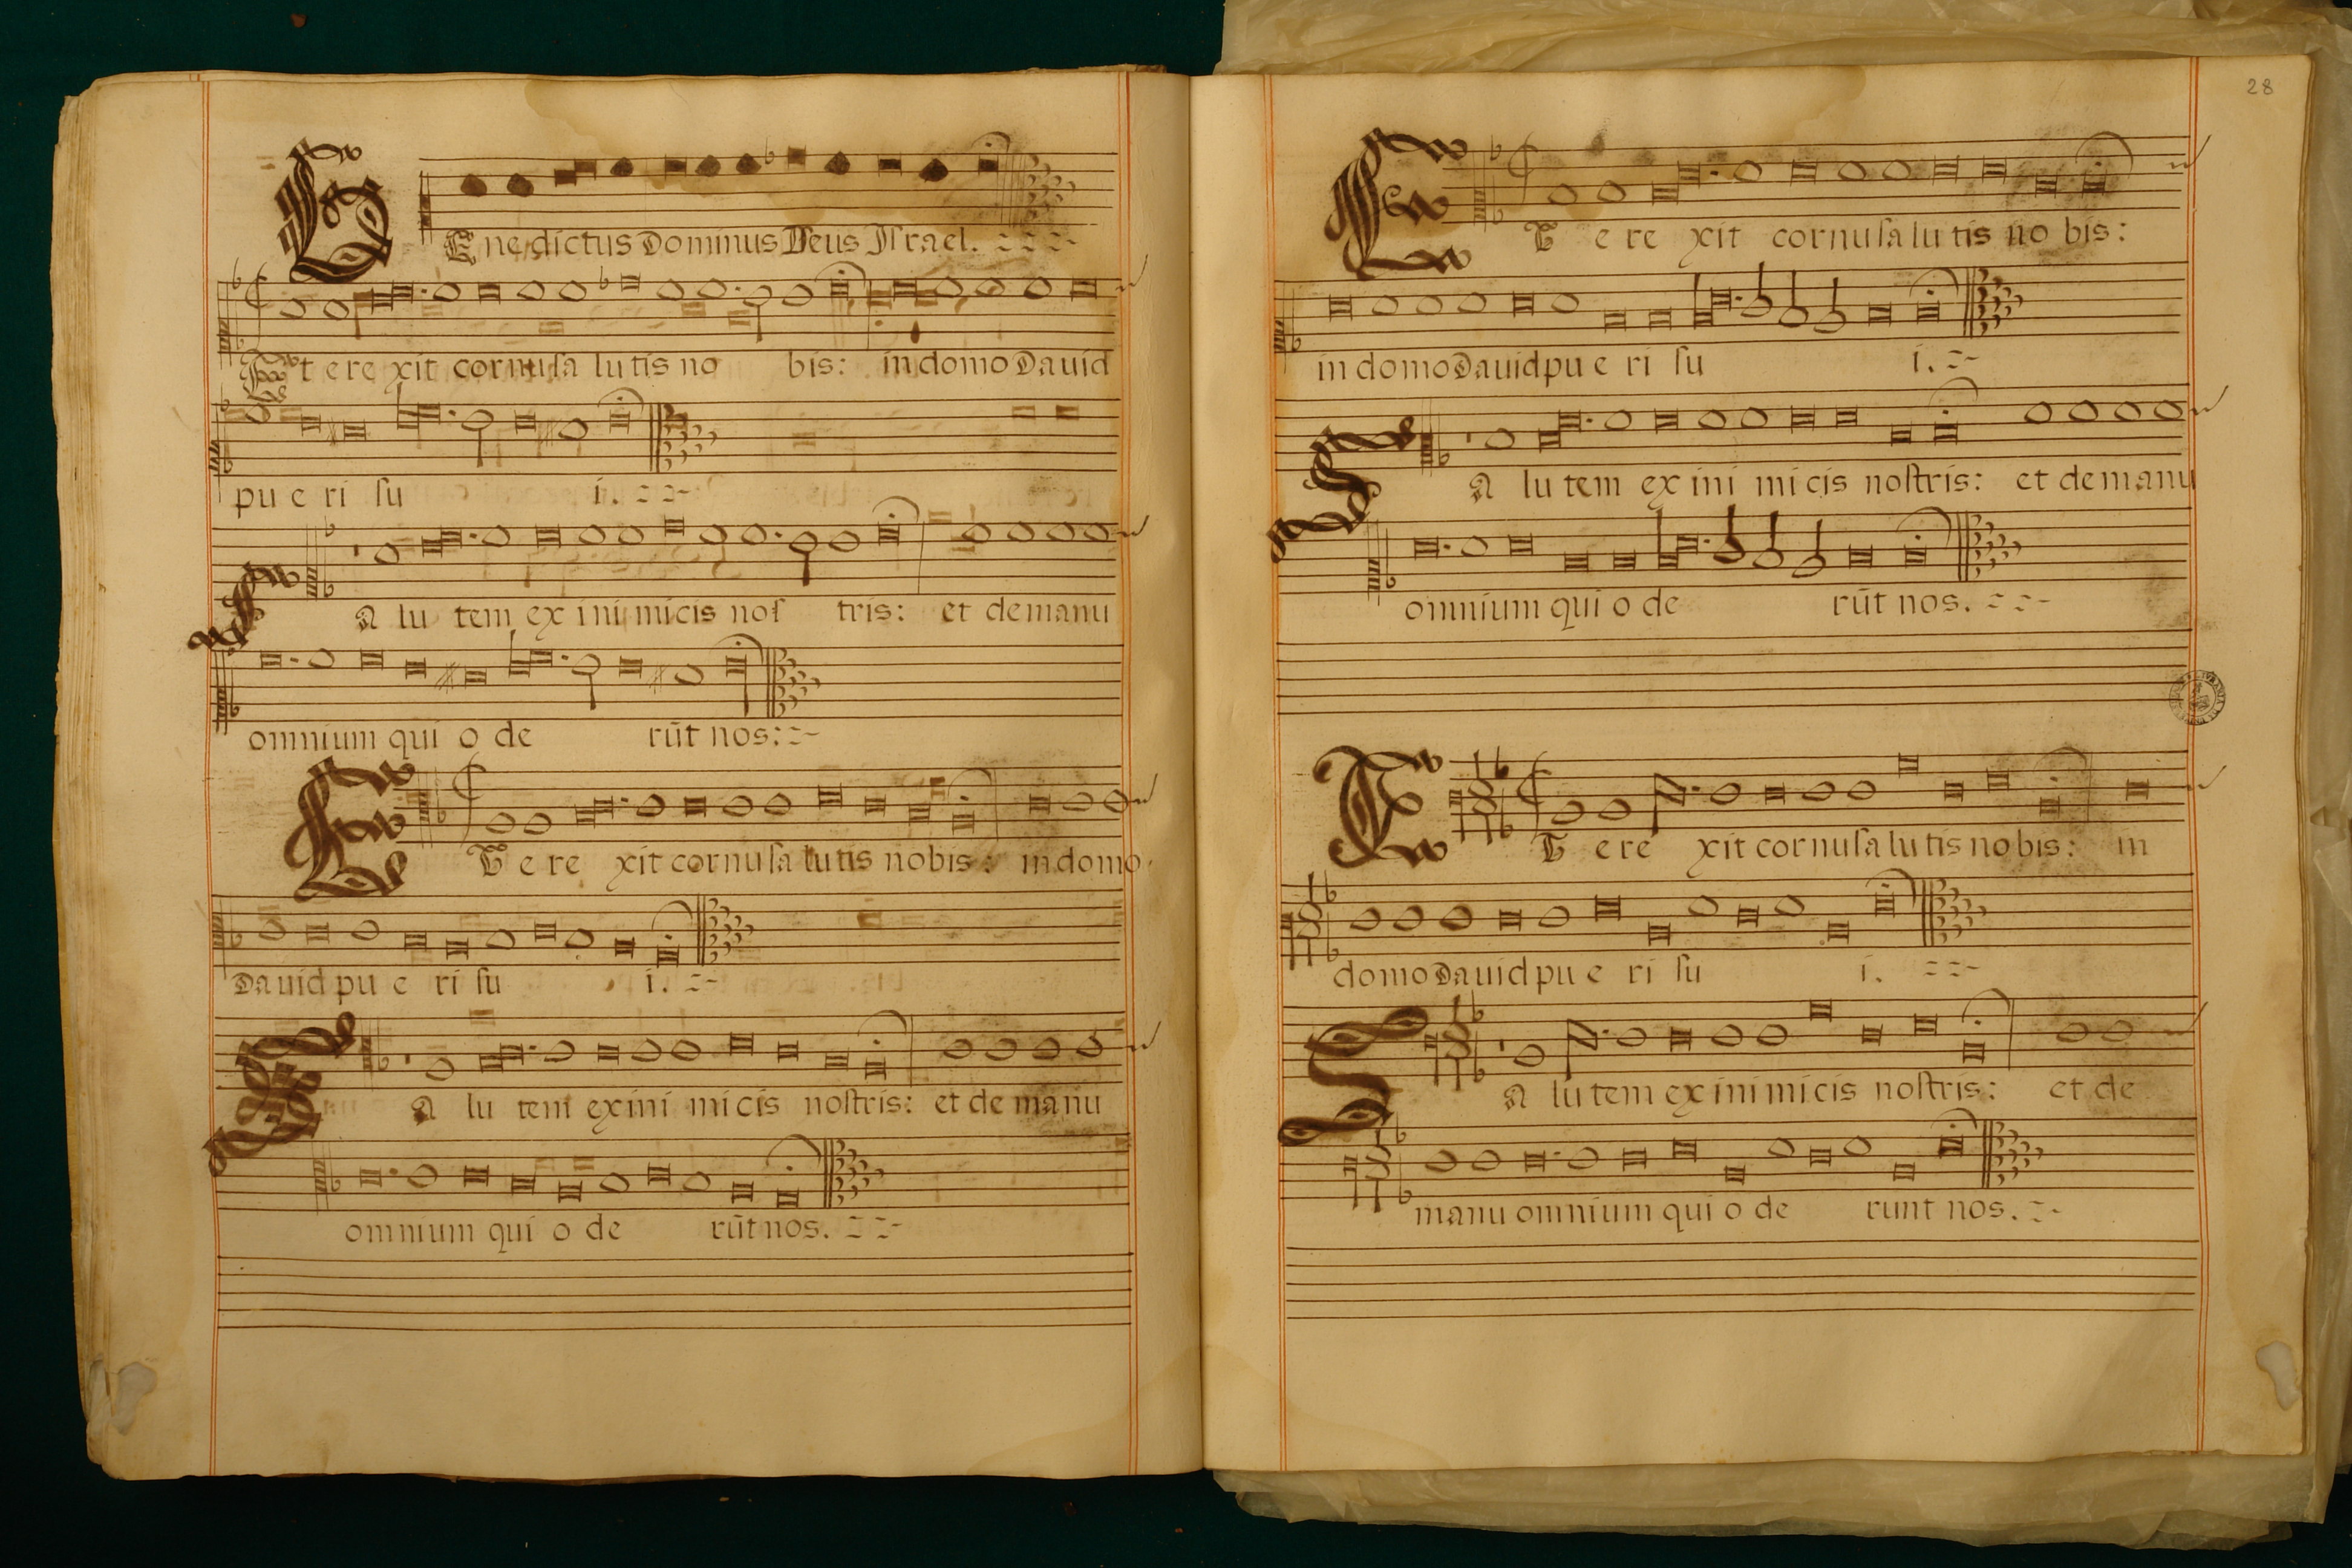 BEnedictus Dominus Deus Israel.
Et erexit cornu sa lutis no bis: in domo Dauid
pu e ri su i.
SA lu tem ex ini micis nos tris: et de manu
omnium qui o de rūt nos:
ET e re xit cornu sa lutis nobis: in domo
Dauid pu e ri su i.
SA lu tem ex ini mi cis nostris: et de manu
omnium qui o de rūt nos.
28
ET e re xit cornu sa lu tis no bis:
in domo Dauid pu e ri su i.
SA lu tem ex ini mi cis nostris: et de manu
omnium qui o de rūt nos.
ET e re xit cornu sa lu tis no bis: in
domo Dauid pu e ri su i.
SA lu tem ex ini mi cis nostris: et de
manu omnium qui o de runt nos.